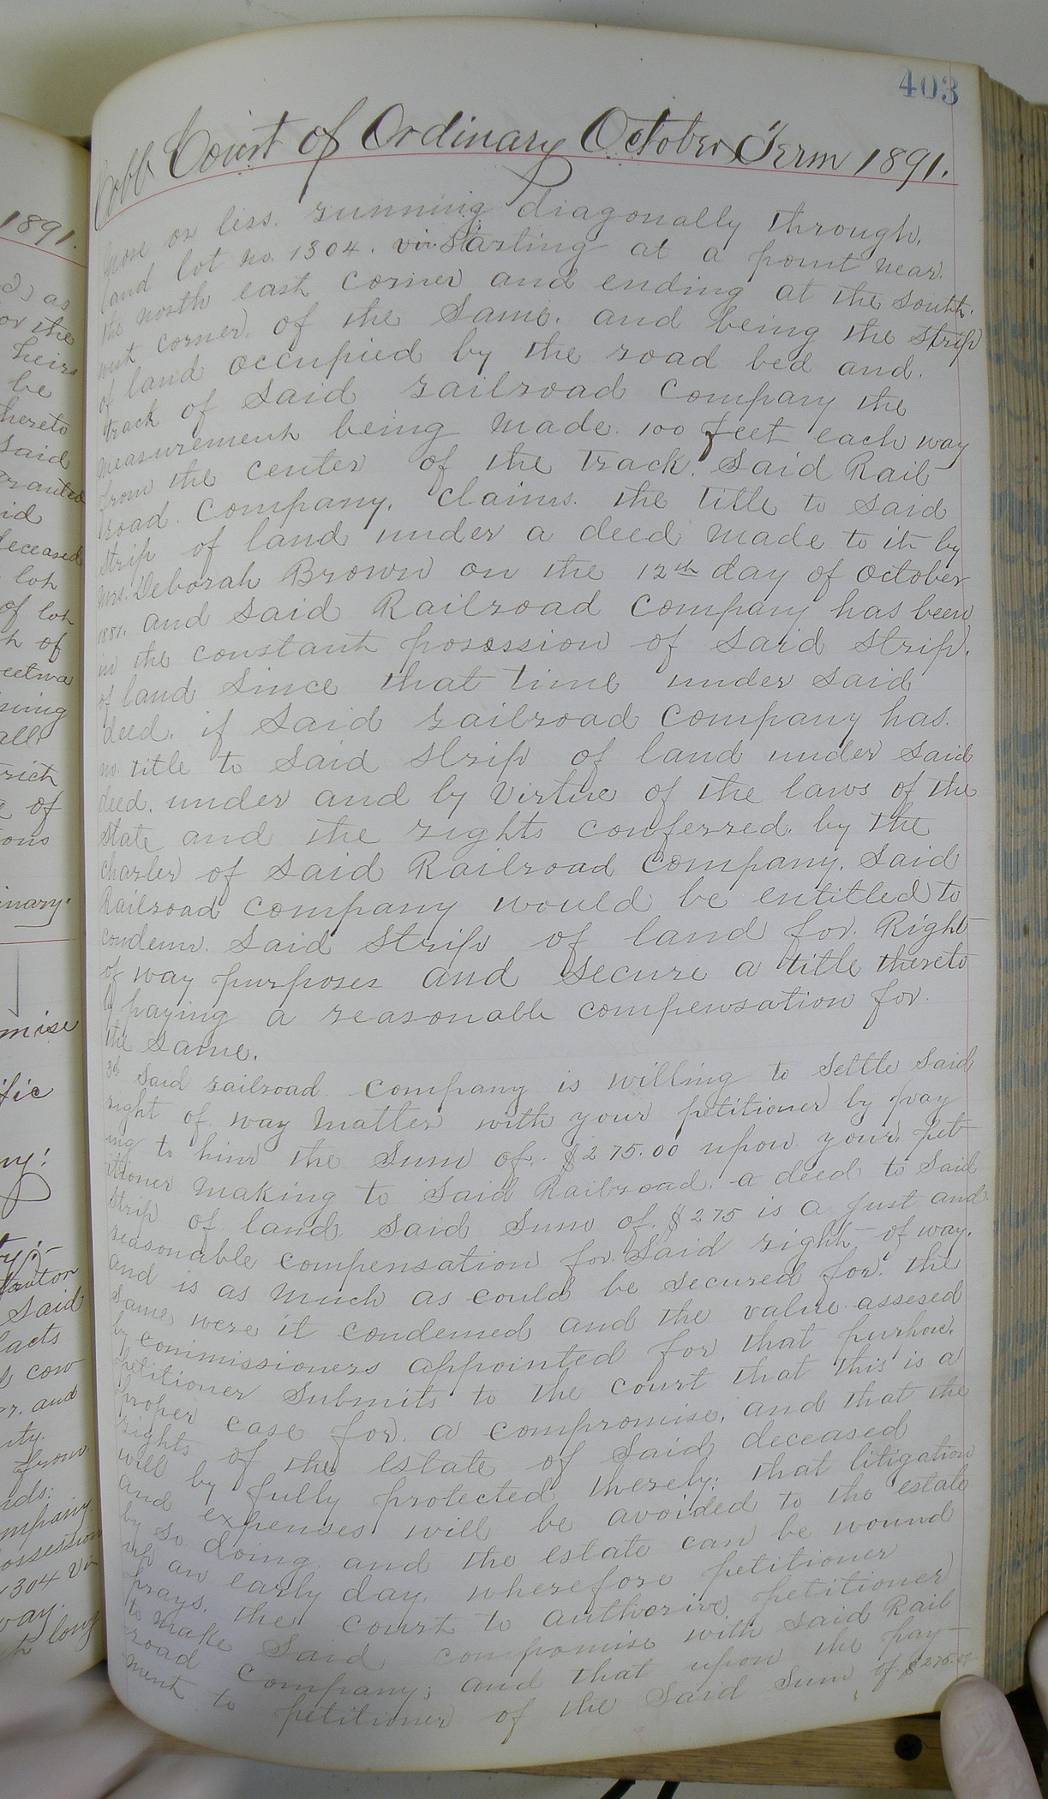 403
Cobb Court of Ordinary October Term 1891.
more or less. running diagonally through.
land lot no. 1304. viz. Starting at a point near.
the north east corner and ending at the south.
west corner. of the Same. and being the strip
of land occupied by the road bed and.
track of Said railroad Company the
measurement being made. 100 feet each way
from the center of the track. Said Rail
road Company. Claims. the title to Said
Strip of land under a deed made to it by
Mrs. Deborah Brown on the 12th day of October
1881. and Said Railroad Company has been
in the constant posession of Said Strip.
of land Since that time under Said
deed. if Said railroad Company has.
no title to Said Strip of land under Said
deed. under and by virtue of the laws of the
State and the rights conferred. by the
charter of Said Railroad Company. Said
Railroad Company would be entitled to
condemn. Said Strip of land for. Right
of way purposes and secure a title thereto
by paying a reasonable compensation for.
the Same.
3d Said railroad Company is willing to Settle Said
right of way matter with your petitioner by pay
ing to him the Sum of. $275.00 upon your pet
itioner making to Said Railroad. a deed to Said
Strip of land Said Sum of $275 is a just and
reasonable compensation for Said right of way.
and is as much as could be secured for. the
Same, were it condemed and the value assesed
by commissioners appointed for that purpose.
petitioner Submits to the court that this is a
proper case for. a compromise. and that the
rights of the estate of Said deceased
will by fully protected thereby: that litigation
and expenses will be avoided to the estate
by so doing. and the estate can be wound
up an early day. wherefore petitioner
prays. the court to authorise petitioner
to make Said compomise with Said Rail
road Company; and that upon the pay-
ment to petitioner of the Said Sum of $275.00
1891.
as
or the
heirs
be
hereto
Said
granted
deceased
lot
of lot
of
all
of
inary.
Said
facts
and
from
ompany
ossession
1304
way.
long